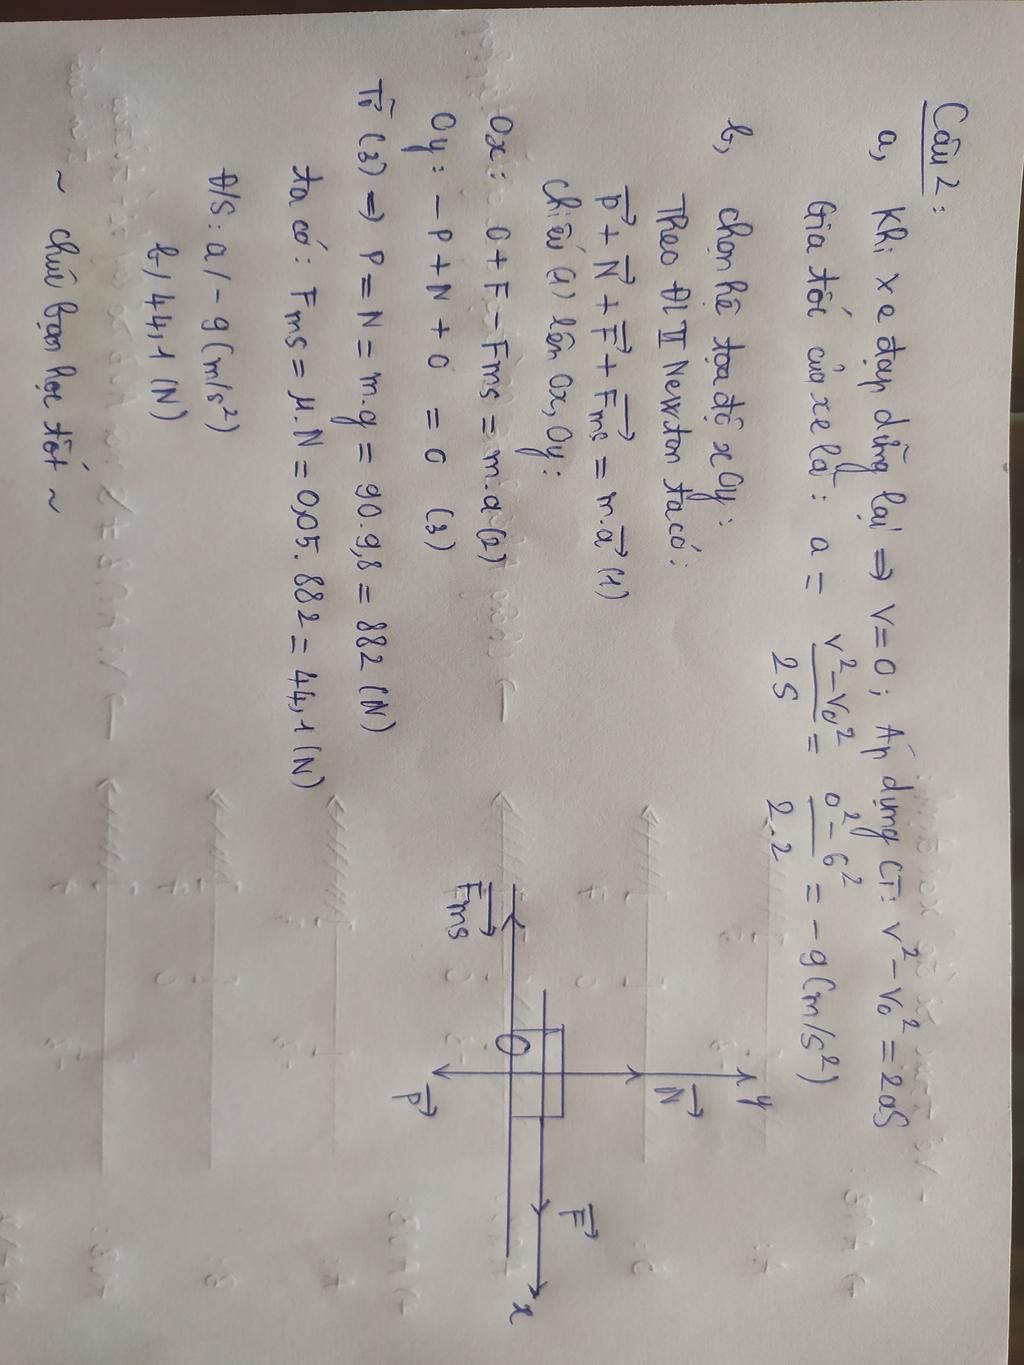 Câu 2:
a, Khi xe đạp dừng lại ⇒ V=0; Áp dụng CT: v² - v₀² = 2aS
Gia tốc của xe là: a = (v² - v₀²)/2S = (0² - 6²)/2.2 = -9(m/s²)
b, chọn hệ tọa độ xOy:
Theo ĐL II Newton ta có:
P⃗ + N⃗ + F⃗ + F⃗ms = m.a⃗ (1)
Chiếu (1) lên Ox, Oy:
Ox: 0 + F - Fms = m.a (2)
Oy: -P + N + 0 = 0 (3)
Từ (3) ⇒ P = N = m.g = 90.9,8 = 882 (N)
Ta có: Fms = μ.N = 0,05.882 = 44,1 (N)
Đ/S: a/ -9(m/s²)
b/ 44,1 (N)
~ chúc bạn học tốt ~
y
N⃗
F⃗
x
O
F⃗ms
P⃗